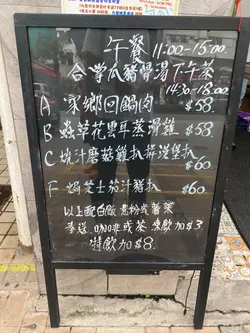 午餐 11:00-15:00
合掌瓜豬骨湯 下午茶
14:30-18:00
A 家鄉回鍋肉 $58
B 蟲草花雲耳蒸滑雞 $58
C 燒汁磨菇雞扒拼漢堡扒
$60
F 焗芝士茄汁豬扒 $60
以上配白飯 意粉或薯菜
奉送 咖啡或茶 凍飲加$3
特飲加$8